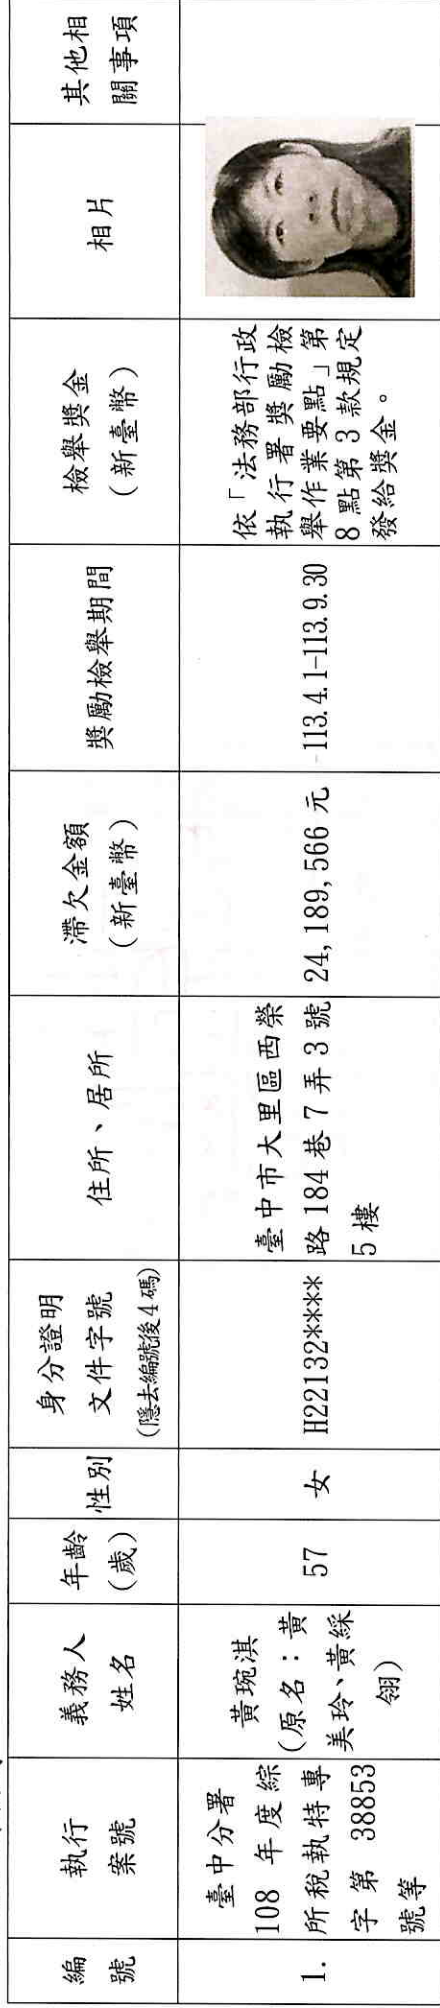 編
號
執行
案號
義務人
姓名
年齡
(歲)
性別
身分證明
文件字號
(隱去編號後4碼)
住所、居所
滯欠金額
(新臺幣)
獎勵檢舉期間
檢舉獎金
(新臺幣)
相片
其他相
關事項
1.
臺中分署
108 年度綜
所稅執特專
字第 38853
號等
黃琬淇
(原名：黃
美玲、黃綵
翎)
57
女
H22132****
臺中市大里區西榮
路 184 巷 7 弄 3 號
5 樓
24,189,566 元
113.4.1-113.9.30
依「法務部行政
執行署獎勵檢
舉作業要點」第
8 點第 3 款規定
發給獎金。